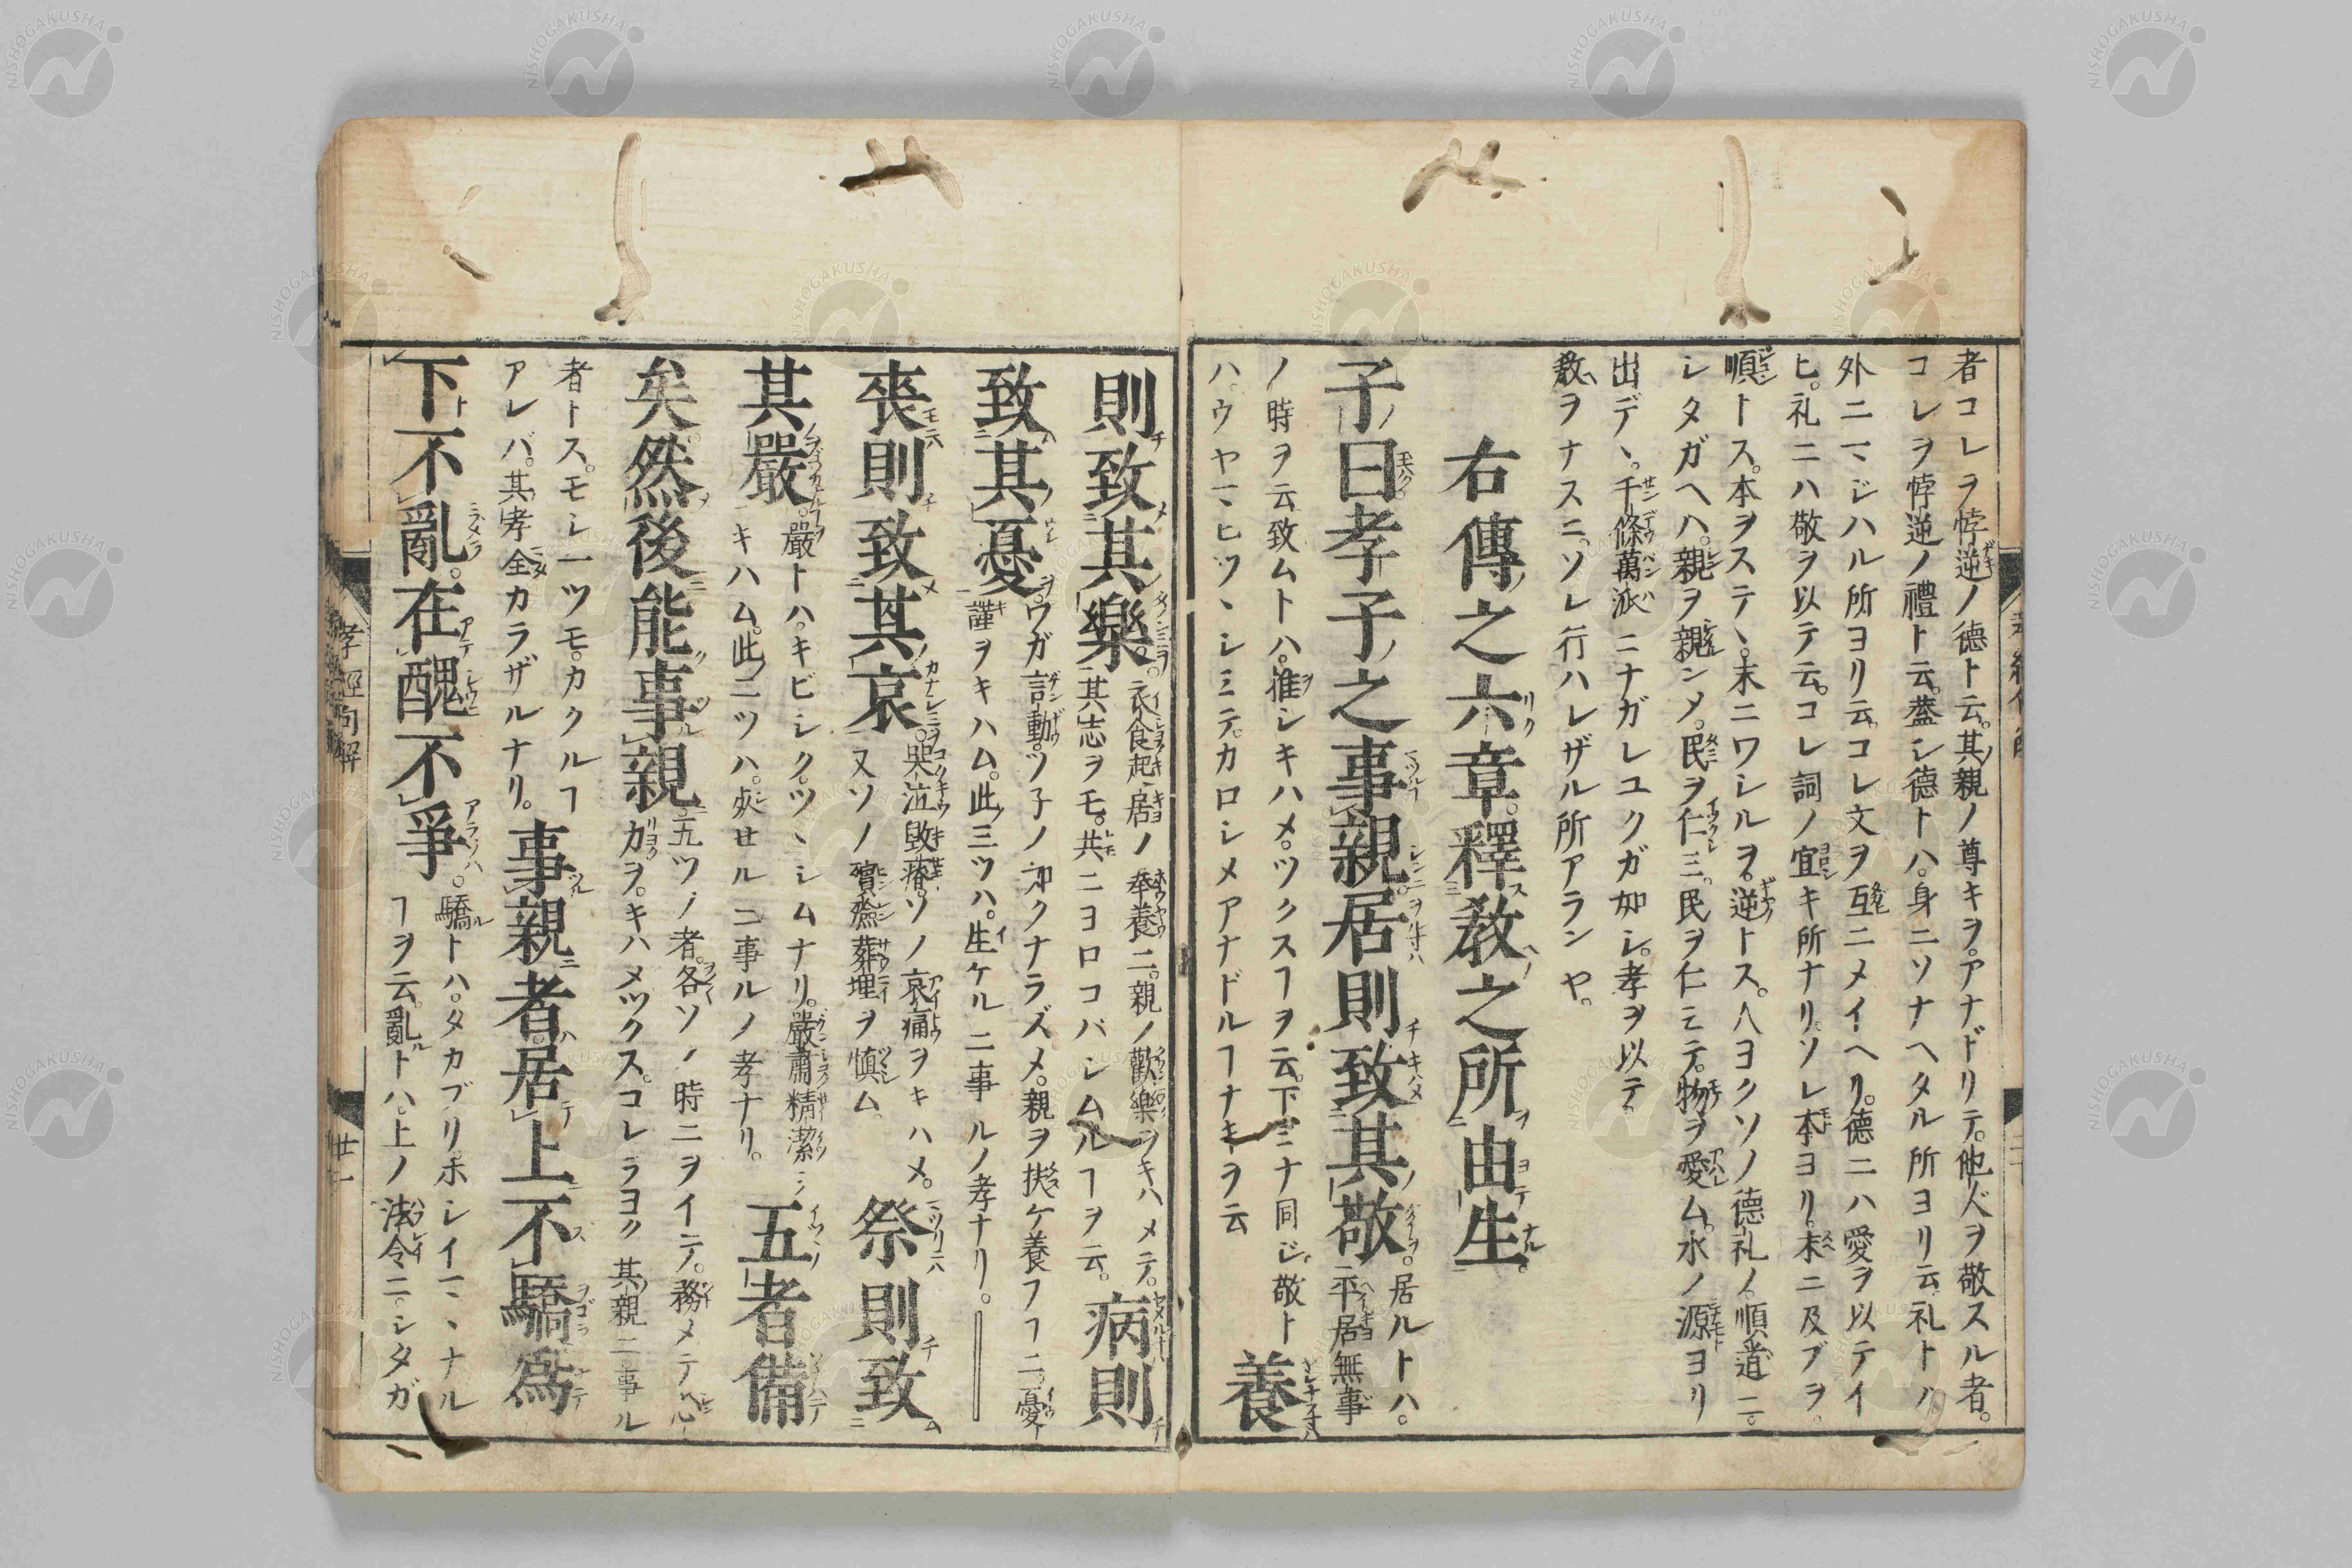 者コレヲ悖逆ノ德ト云。其親ノ尊キヲ。アナドリテ。他人ヲ敬スル者。
コレヲ悖逆ノ禮ト云。蓋シ德トハ。身ニソナヘタル所ヨリ云。礼トハ
外ニマジハル所ヨリ云。コレ文ヲ互ニメイヘリ。德ニハ愛ヲ以テイ
ヒ。礼ニハ敬ヲ以テ云。コレ詞ノ宜キ所ナリ。ソレ本ヨリ。末ニ及ブヲ。
順トス。本ヲステヽ。末ニワシルヲ。逆トス。人ヨクソノ德礼ノ。順道ニ。
シタガヘハ。親ヲ親シメ。民ヲ仁ミ。民ヲ仁ミテ。物ヲ愛ム。水ノ源ヨリ
出デヽ。千條萬派ニナガレユクガ如シ。孝ヲ以テ
敎ヲナスニ。ソレ行ハレザル所アランヤ。
右傳之六章。釋敎之所由生。
子曰。孝子之事親。居則致其敬。居ルトハ。平居無事
ノ時ヲ云致ムトハ。推シキハメ。ツクスヿヲ云。下ミナ同ジ敬ト
ハ。ウヤマヒツヽシミテ。カロシメアナドルヿナキヲ云養
則致其樂。衣食起居ノ奉養ニ。親ノ歡樂ヲキハメテ。
其志ヲモ。共ニヨロコバシムルヿヲ云。病則
致其憂。ワガ言動。ツ子ノ如クナラズメ。親ヲ扶ケ養フヿニ。憂
謹ヲキハム。此三ツハ。生ケルニ事ルノ孝ナリ。
喪則致其哀。哭泣毀瘠。ソノ哀痛ヲキハメ。
又ソノ殯斂葬埋ヲ愼ム。祭則致
其嚴。嚴トハ。キビシク。ツヽシムナリ。嚴肅精潔ニ
キハム。此二ツハ。死セルニ事ルノ孝ナリ。五者備
矣。然後能事親。五ツノ者。各ソノ時ニヲイテ。務メテ心
力ヲ。キハメツクス。コレラヨク其親ニ事ル
者トス。モシ一ツモ。カクルヿ
アレバ。其孝全カラザルナリ。事親者。居上不驕。爲
下不亂。在醜不爭。驕トハ。タカブリホシイマヽナル
ヿヲ云。亂トハ。上ノ法令ニ。シタガ
孝經句解
廿一